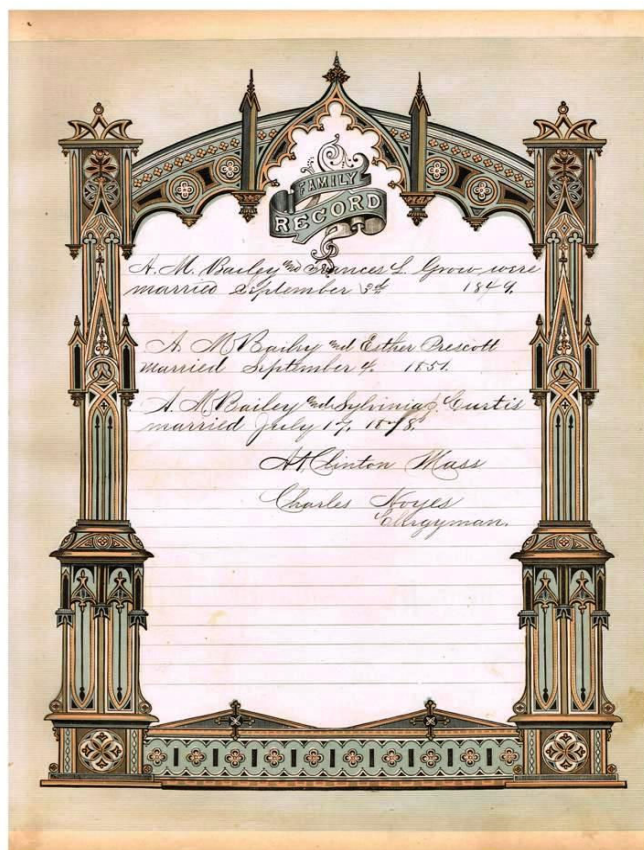 FAMILY
RECORD
A. M. Bailey and Frances L. Grow were
married September 3d 1849.
A. M. Bailey and Esther Prescott
married September 4, 1851.
A. M. Bailey and Sylvinia Curtis
married July
At Clinton Mass
Charles Noyes
Clergyman.